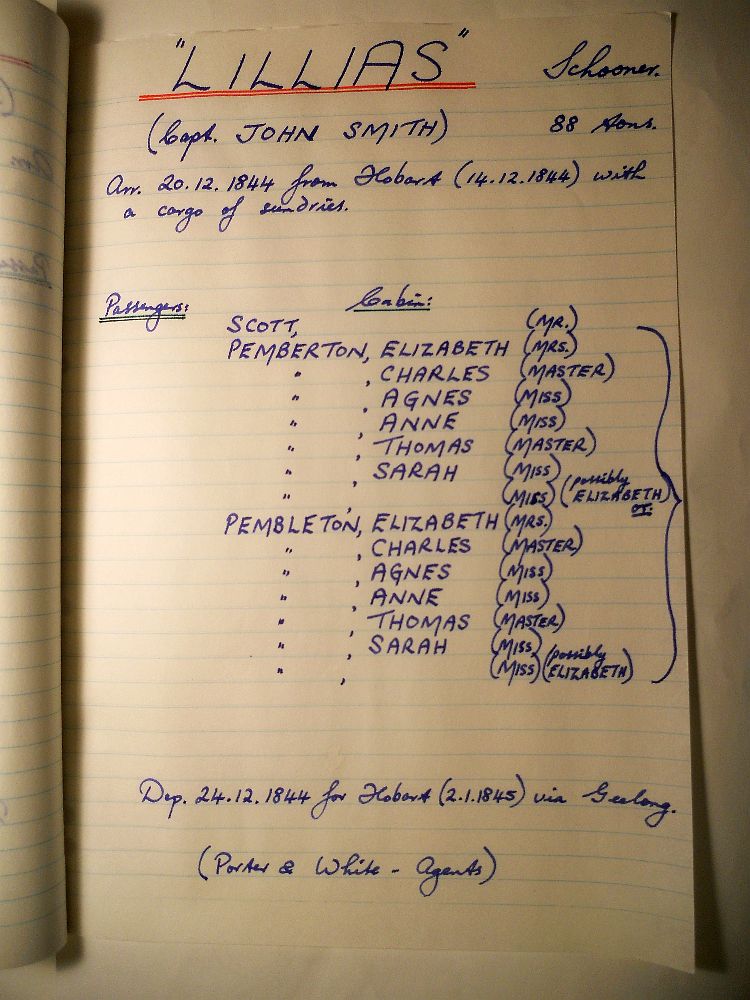 "LILLIAS" Schooner.
(Capt. JOHN SMITH) 88 tons.
Arr. 20.12.1844 from Hobart (14.12.1844) with
a cargo of sundries.
Passengers: Cabin:
SCOTT, (MR.)
PEMBERTON, ELIZABETH (MRS.)
" , CHARLES (MASTER)
" , AGNES (MISS)
" , ANNE (MISS)
" , THOMAS (MASTER)
" , SARAH (MISS)
" , (MISS) (possibly ELIZABETH) OR:
PEMBLETON, ELIZABETH (MRS.)
" , CHARLES (MASTER)
" , AGNES (MISS)
" , ANNE (MISS)
" , THOMAS (MASTER)
" , SARAH (MISS)
" , (MISS) (possibly ELIZABETH)
Dep. 24.12.1844 for Hobart (2.1.1845) via Geelong.
(Porter & White - Agents)